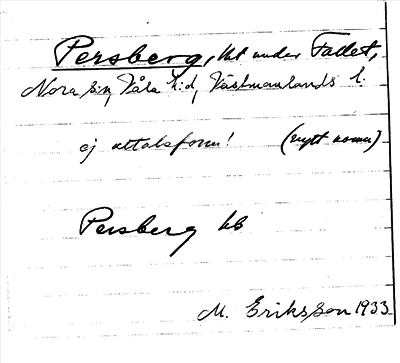 Persberg, lht under Fallet,
Nora sn, Våla hd, Västmanlands l.
ej uttalsform! (nytt namn)
Persberg hb
M. Eriksson 1933